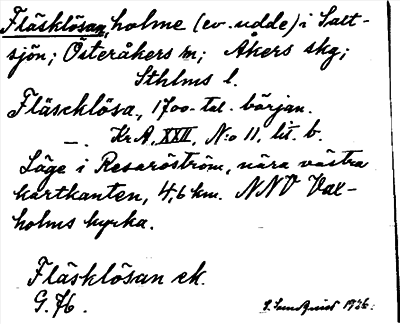 Fläsklösan, holme (ev. udde) i Salt-
sjön; Österåkers sn; Åkers skg;
Sthlms l.
Fläscklösa, 1700-tal. början.
—. KrA, XXII, N:o 11, lit. b.
Läge i Resaröström, nära västra
kartkanten, 4,6 km. NNV Vax-
holms kyrka.
Fläsklösan ek.
G. 76.
S. Sundquist 1926.